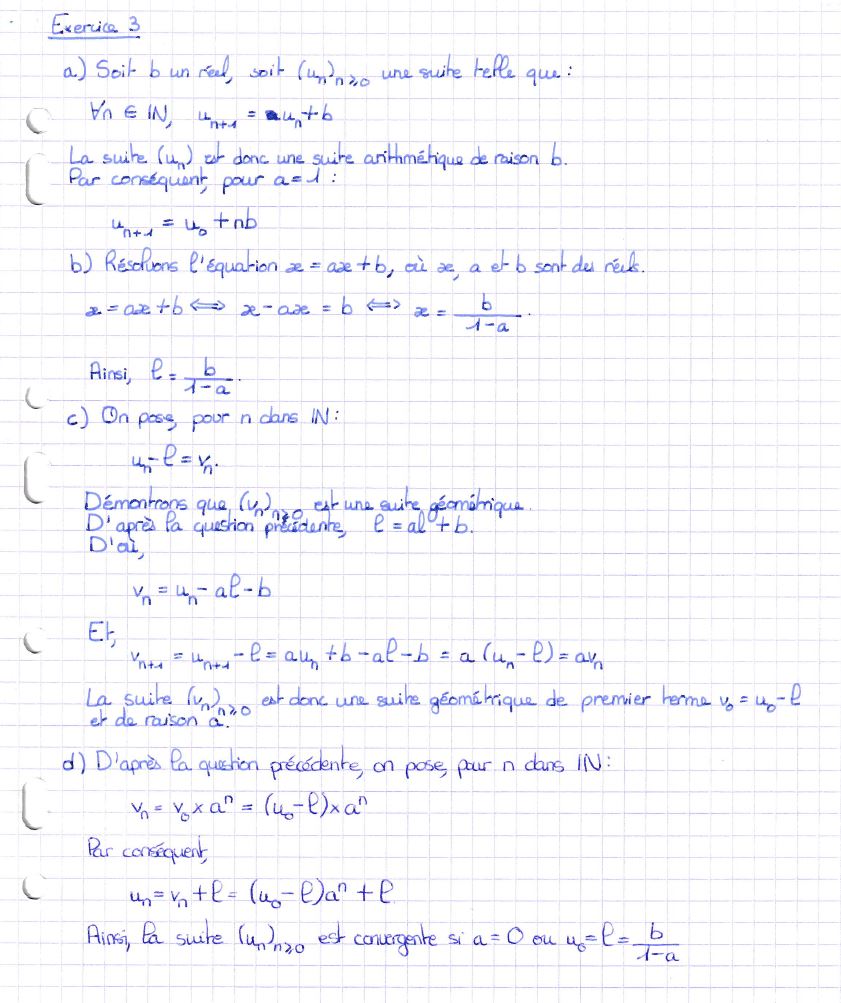 Exercice 3
a) Soit b un réel, soit (uₙ)ₙ≥₀ une suite telle que :
∀n ∈ IN, uₙ₊₁ = uₙ + b
La suite (uₙ) est donc une suite arithmétique de raison b.
Par conséquent, pour a = 1 :
uₙ₊₁ = u₀ + nb
b) Résolvons l'équation x = ax + b, où x, a et b sont des réels.
x = ax + b ⟺ x - ax = b ⟺ x = b/(1-a).
Ainsi, ℓ = b/(1-a).
c) On pose, pour n dans IN :
uₙ - ℓ = vₙ.
Démontrons que (vₙ)ₙ≥₀ est une suite géométrique.
D'après la question précédente, ℓ = aℓ + b.
D'où,
vₙ = uₙ - aℓ - b
Et,
vₙ₊₁ = uₙ₊₁ - ℓ = auₙ + b - aℓ - b = a (uₙ - ℓ) = avₙ
La suite (vₙ)ₙ≥₀ est donc une suite géométrique de premier terme v₀ = u₀ - ℓ
et de raison a.
d) D'après la question précédente, on pose, pour n dans IN :
vₙ = v₀ × aⁿ = (u₀ - ℓ) × aⁿ
Par conséquent,
uₙ = vₙ + ℓ = (u₀ - ℓ)aⁿ + ℓ
Ainsi, la suite (uₙ)ₙ≥₀ est convergente si a = 0 ou u₀ = ℓ = b/(1-a)